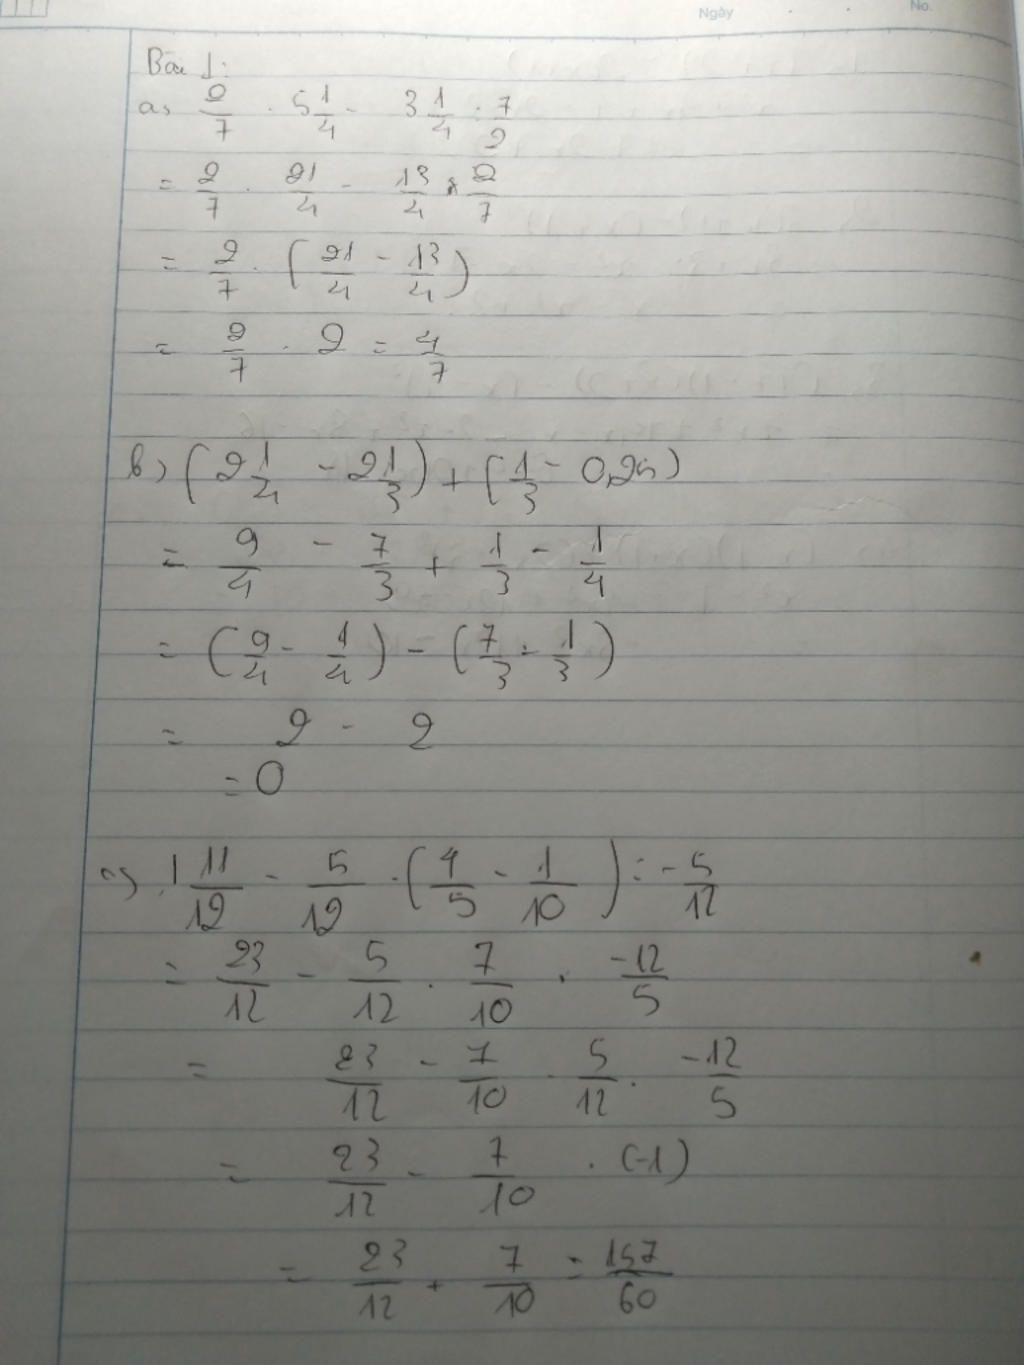 Ngày . . No.
Bài 1:
a, 2/7 . 5 1/4 - 3 1/4 : 7/2
= 2/7 . 21/4 - 13/4 . 2/7
= 2/7 . (21/4 - 13/4)
= 2/7 . 2 = 4/7
b, (2 1/4 - 2 1/3) + (1/3 - 0,25)
= 9/4 - 7/3 + 1/3 - 1/4
= (9/4 - 1/4) - (7/3 - 1/3)
= 2 - 2
= 0
c, 1 11/12 - 5/12 . (4/5 - 1/10) : -5/12
= 23/12 - 5/12 . 7/10 . -12/5
= 23/12 - 7/10 . 5/12 . -12/5
= 23/12 - 7/10 . (-1)
= 23/12 + 7/10 = 157/60